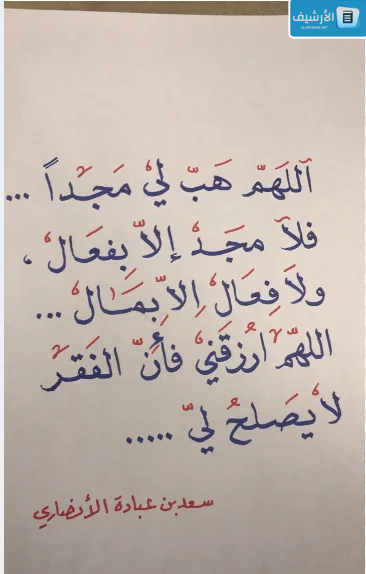 الأرشيف
اللهم هب لي مجداً ...
فلا مجد إلا بفعال ،
ولا فعال إلا بمال ...
اللهم ارزقني فأن الفقر
لا يصلح لي .....
سعد بن عبادة الأنصاري